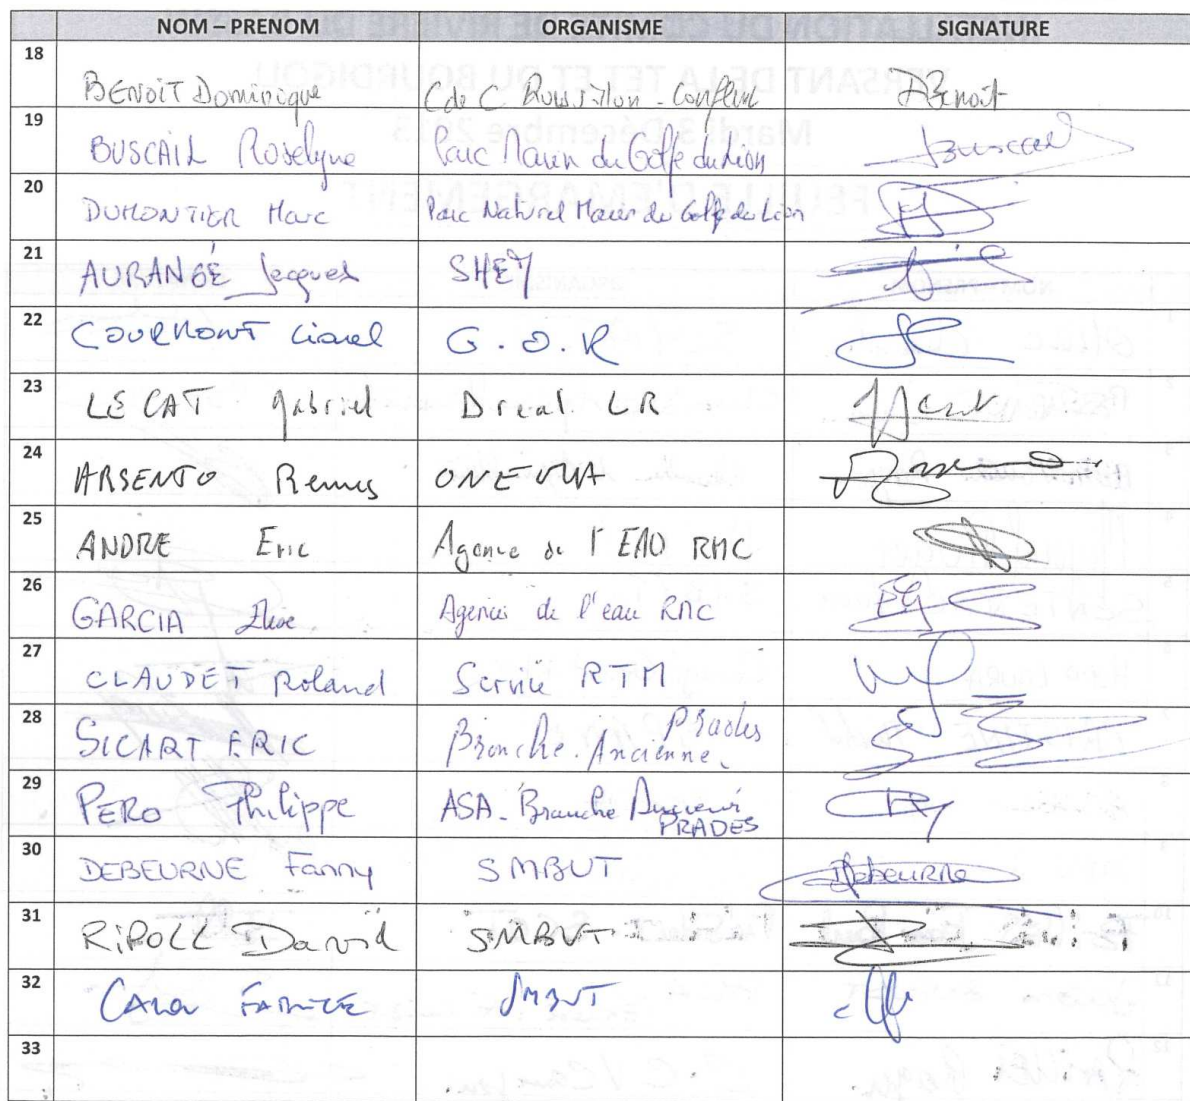 NOM – PRENOM ORGANISME SIGNATURE
18 BENOIT Dominique C de C Roussillon - Conflent DBenoit
19 BUSCAIL Roselyne Parc Marin du Golfe du Lion Buscail
20 DUMONTIER Marc Parc Naturel Marin du Golfe du Lion
21 AURANGÉ Jacques
22 COURMONT Lionel G.O.R
23 LE CAT Gabriel Dreal LR
24 ARSENTO Remy ONEMA
25 ANDRE Eric Agence de l'EAU RMC
26 GARCIA Elise Agence de l'eau RMC EG
27 CLAUDET Roland Service RTM
28 SICART ERIC Branche Ancienne Prades
29 PERO Philippe ASA - Branche Ancienne PRADES
30 DEBEURNE Fanny SMBVT Debeurne
31 RIPOLL David SMBVT
32 SMBVT
33